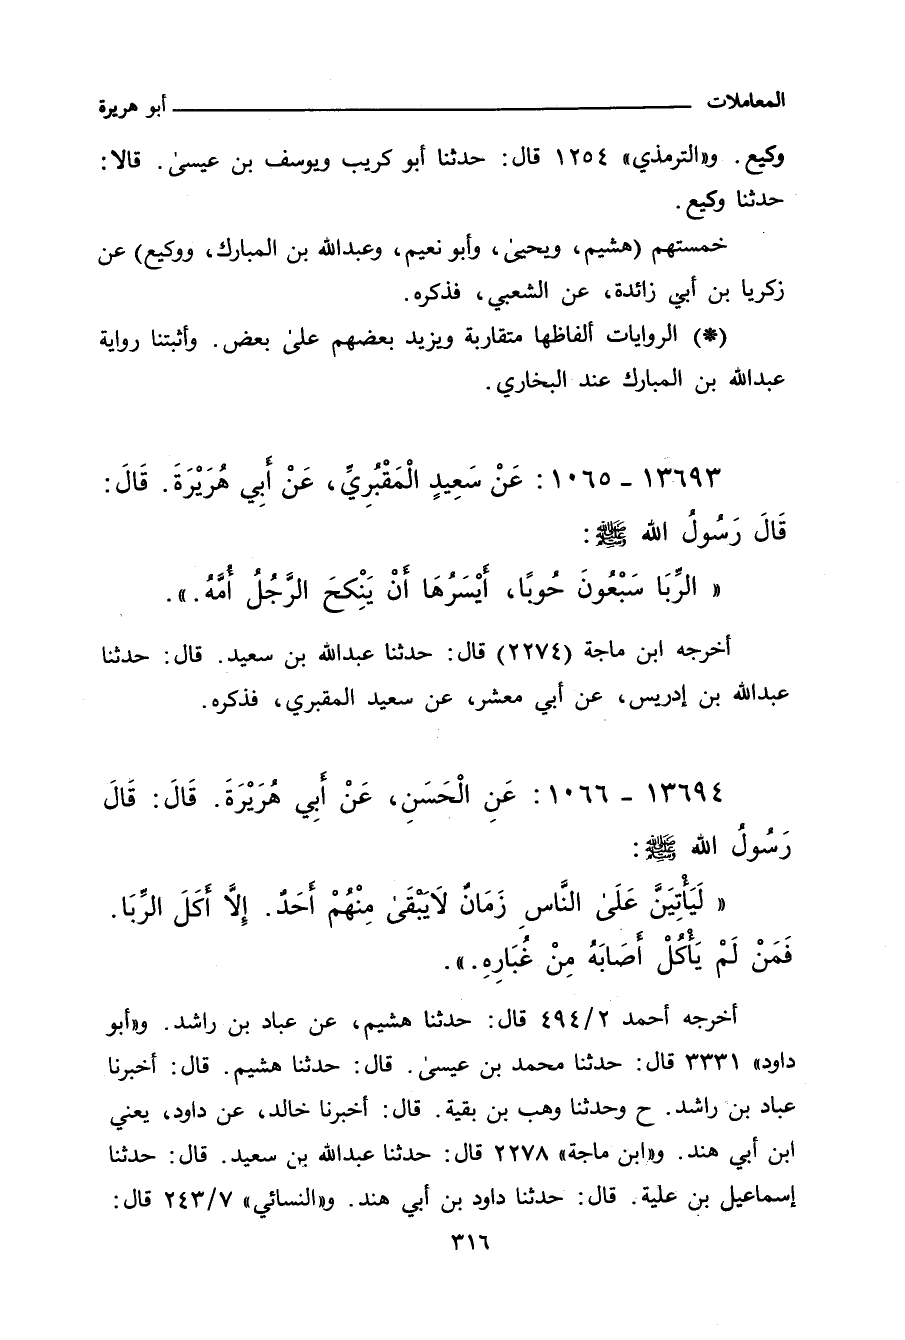 المعاملات ــــــــــــــــــــــــــــــــــــــــ أبو هريرة
وكيع. و«الترمذي» ١٢٥٤ قال: حدثنا أبو كريب ويوسف بن عيسىٰ. قالا:
حدثنا وكيع.
خمستهم (هشيم، ويحيىٰ، وأبو نعيم، وعبدالله بن المبارك، ووكيع) عن
زكريا بن أبي زائدة، عن الشعبي، فذكره.
(*) الروايات ألفاظها متقاربة ويزيد بعضهم علىٰ بعض. وأثبتنا رواية
عبدالله بن المبارك عند البخاري.
١٣٦٩٣ - ١٠٦٥: عَنْ سَعِيدٍ الْمَقْبُرِيِّ، عَنْ أَبِي هُرَيْرَةَ. قَالَ:
قَالَ رَسُولُ الله ﷺ:
« الرِّبَا سَبْعُونَ حُوبًا، أَيْسَرُهَا أَنْ يَنْكِحَ الرَّجُلُ أُمَّهُ.».
أخرجه ابن ماجة (٢٢٧٤) قال: حدثنا عبدالله بن سعيد. قال: حدثنا
عبدالله بن إدريس، عن أبي معشر، عن سعيد المقبري، فذكره.
١٣٦٩٤ - ١٠٦٦: عَنِ الْحَسَنِ، عَنْ أَبِي هُرَيْرَةَ. قَالَ: قَالَ
رَسُولُ الله ﷺ:
« لَيَأْتِيَنَّ عَلَىٰ النَّاسِ زَمَانٌ لَايَبْقَىٰ مِنْهُمْ أَحَدٌ. إِلَّا أَكَلَ الرِّبَا.
فَمَنْ لَمْ يَأْكُلْ أَصَابَهُ مِنْ غُبَارِهِ.».
أخرجه أحمد ٤٩٤/٢ قال: حدثنا هشيم، عن عباد بن راشد. و«أبو
داود» ٣٣٣١ قال: حدثنا محمد بن عيسىٰ. قال: حدثنا هشيم. قال: أخبرنا
عباد بن راشد. ح وحدثنا وهب بن بقية. قال: أخبرنا خالد، عن داود، يعني
ابن أبي هند. و«ابن ماجة» ٢٢٧٨ قال: حدثنا عبدالله بن سعيد. قال: حدثنا
إسماعيل بن علية. قال: حدثنا داود بن أبي هند. و«النسائي» ٢٤٣/٧ قال:
٣١٦